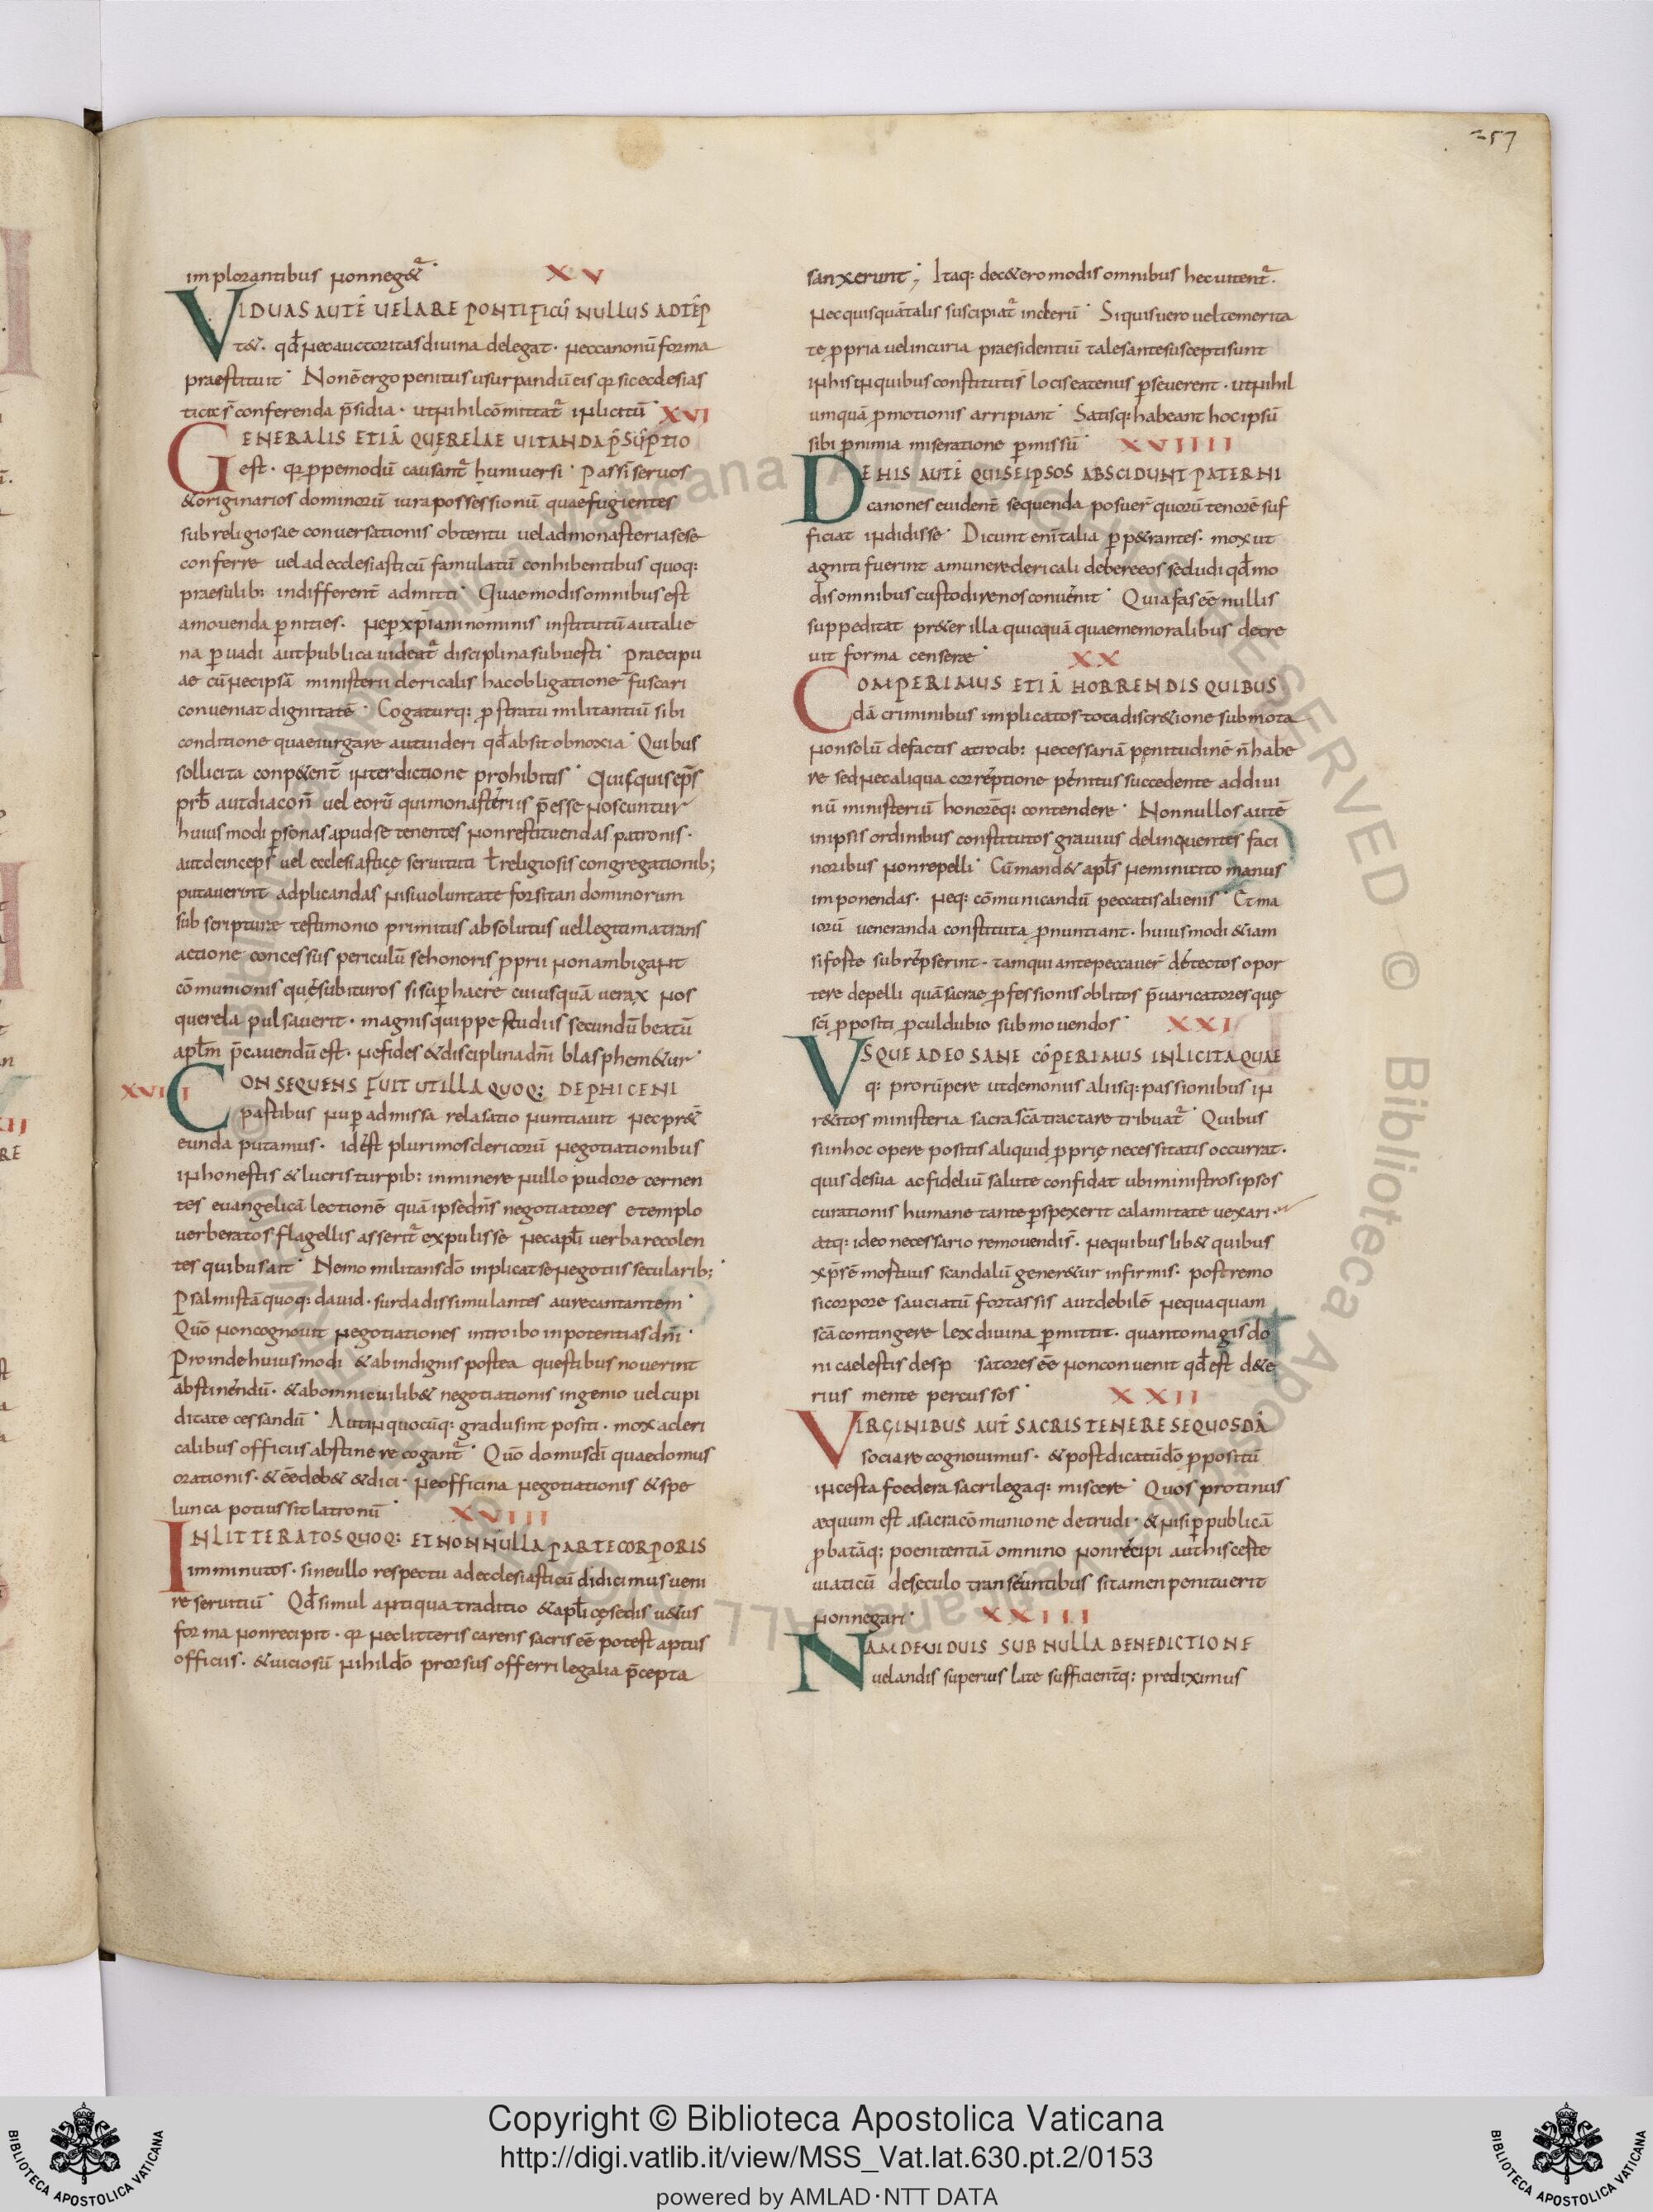 257
implorantibus nonneg&ᷣ· XV
VIDUAS AUTĒ UELARE PONTIFICŪ NULLUS ADTĒP
t&· qđ necauctoritasdiuina delegat· neccanonū forma
praestituit· Nonē ergo penitus usurpandū eis qr sicecclesias
tica s̄ conferenda p̄sidia· utnihilcōmittat᷑ inlicitū· XVI
GENERALIS ETIĀ QUERELAE UITANDAP̄SŪPTIO
est· qr ppemodū causant᷑ huniuersi· Passī seruos
&originarios dominorū iurapossessionū quaefugientes
subreligiosae conuersationis obtentu ueladmonasteriasese
conferre ueladecclesiasticū famulatū conhibentibus quoq:
praesulib: indifferent̄ admitti· Quaemodisomnibusest
amouenda pnities· neperxp̄ianinominis institutū autalie
na puadi autpublica uideat᷑ disciplinasubuesti· Praecipu
ae cū necipsā ministerii clericalis hacobligatione fuscari
conueniat dignitatē· Cogaturq: pstratu militantiū sibi
conditione quaeiurgare autuideri qđ absit obnoxia· Quibus
sollicita conp&ent̄ interdictione prohibitis· Quisquisep̄s
prb̄ autdiacon̄ uel eorū quimonasteriis p̄esse noscuntur
huiusmodi psonasapudse tenentes nonrestituendas patronis·
autdeinceps uel ecclesiasticę seruituti ł religiosis congregationib;
putauerint adplicandas nisiuoluntate forsitan dominorum
sub scripturae testimonio primitus absolutus uellegitimatrans
actione concessus periculū sehonoris pprii nonambigant
cōmunionis quęsubituros sisuphacre cuiusquā uerax nos
querela pulsauerit· magnisquippe studiis secundū beatū
apłm p̄cauendū est· nefides &disciplinadn̄i blasphem&ur·
XVII
CONSEQUENS FUIT UTILLAQUOQ: DEPHICENI
pastibus nup admissa relasatio nuntiauit necpr&
eunda putamus· idest plurimosclericorū negotiationibus
inhonestis & lucristurpib: inminere nullo pudore cernen
tes euangelicā lectionē quā ipsedn̄s negotiatores etemplo
uerberatos flagellis asserit᷑ expulisse necapłi uerbarecolen
tes quibusait· Nemo militansdō inplicatsenegotiis secularib;
Psalmistāquoq: dauid· surdadissimulantes aurecantantem·
Quō noncognouit negotiationes introibo inpotentiasdn̄i·
Proindehuiusmodi &abindignis postea questibus nouerint
abstinendū· &abomnicuilib& negotiationis ingenio uelcupi
ditate cessandū· Autinquocūq: gradusint positi· moxacleri
calibus officiis abstinere cogant᷑· Quō domusdī quaedomus
orationis· & ēe deb& &dici· neofficina negotiationis & spe
lunca potiussit latronū· XVIII
INLITTERATOSQUOQ: ETNONNULLAPARTECORPORIS
imminutos· sineullo respectu adecclesiasticū didicimusueni
re seruitiū· Qđ simul antiquatraditio &apłicęsedis u&us
forma nonrecipit· qr neclitteris carens sacris ēe potest aptus
officiis· &uiciosū nihildō prorsus offerri legalia p̄cepta
sanxerunt; Itaq: dec&eromodisomnibus hecuitent᷑·
necquisquātalis suscipiat᷑ inclerū· Siquisuero ueltemerita
te ppria uelincuria praesidentiū talesantesusceptisunt
inhisinquibus constitutis̄ lociseatenus pseuerent· utnihil
umquā pmotionis arripiant· Satisq: habeant hocipsū
sibi pnimia miseratione pmissū· XVIIII
DEHIS AUTĒ QUISEIPSOS ABSCIDUNT PATERNI
canones euident̄ sequenda posuer̄ quorū tenorē suf
ficiat indidisse· Dicunt enī talia pp&rantes· moxut
agniti fuerint amunereclericali debereeos secludi qđ mo
disomnibus custodirenos conuenit· Quiafas ēe nullis
suppeditat pr&er illa quicquā quaememoralibus decre
uit forma censerae· XX
COMPERIMUS ETIĀ HORRENDIS QUIBUS
dā criminibus implicatos totadiscr&ione submota
nonsolū defactis atrocib: necessariā penitudinē n̄ habe
re sed necaliqua correptione penitus succedente addiui
nū ministeriū honorēq: contendere· Nonnullos autē
inipsis ordinibus constitutos grauius delinquentes faci
noribus nonrepelli· Cū mand& apłs neminicito manus
imponendas· neq: cōmunicandū peccatisalienis· Etma
iorū ueneranda constituta pnuntiant· huiusmodi &iam
siforte subrepserint· tamqui antepeccauer̄ detectos opor
tere depelli quāsacrae pfessionisoblitos p̄uaricatoresquę
sc̄i ppositi pculdubio submouendos· XXI
VSQUEADEO SANE CŌPERIMUS INLICITAQUAE
q: prorūpere utdemoniis aliisq: passionibus in
r&itos ministeria sacrasc̄a tractare tribuat᷑· Quibus
siinhoc opere positis aliquid pprię necessitatis occurrat·
quis desua acfideliū salute confidat ubiministrosipsos
curationis humane tante pspexerit calamitate uexari·
atq: ideo necessario remouendis· nequibuslib& quibus
xp̄s ē mostuus scandalū gener&ur infirmis· postremo
sicorpore sauciatū fortassis autdebilē nequaquam
sc̄a contingere lexdiuina pmittit· quantomagisdo
ni caelestis desp satores ēe nonconuenit qđ est d&e
rius mente percussos· XXII
VIRGINIBUS AUT̄ SACRISTENERESEQUOSDĀ
sociarecognouimus· &postdicatūdō ppositū
incesta foedera sacrilegaq: miscere· Quos protinus
aequum est asacracōmunione detrudi· &nisi ppublicā
pbatāq: poenitentiā omnino nonrecipi authisceste
uiaticū deseculo transeuntibus sitamenpenituerit
nonnegari· XXIII
NAMDEUIDUIS SUBNULLABENEDICTIONE
uelandis superius late sufficientq: prediximus
Copyright © Biblioteca Apostolica Vaticana
http://digi.vatlib.it/view/MSS_Vat.lat.630.pt.2/0153
powered by AMLAD·NTT DATA
BIBLIOTECA APOSTOLICA VATICANA
BIBLIOTECA APOSTOLICA VATICANA